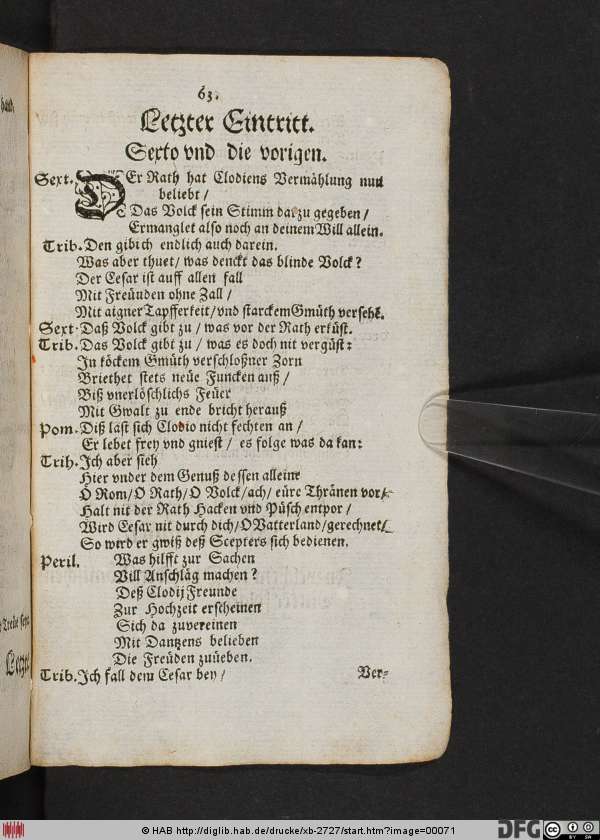 63.
Letzter Eintritt.
Sexto vnd die vorigen.
Sext. DEr Rath hat Clodiens Vermählung nun
beliebt /
Das Volck sein Stimm darzu gegeben /
Ermanglet also noch an deinem Will allein.
Trib. Den gib ich endlich auch darein.
Was aber thuet / was denckt das blinde Volck?
Der Cesar ist auff allen fall
Mit Freünden ohne Zall /
Mit aigner Tapfferkeit / vnd starckem Gmüth versehē.
Sext. Daß Volck gibt zu / was vor der Rath erküst.
Trib. Das Volck gibt zu / was es doch nit vergüst:
In köckem Gmüth verschloßner Zorn
Briethet stets neüe Funcken auß /
Biß vnerlöschlichs Feüer
Mit Gwalt zu ende bricht herauß
Pom. Diß last sich Clodio nicht fechten an /
Er lebet frey vnd gniest / es folge was da kan:
Trib. Ich aber sieh
Hier vnder dem Genuß dessen alleine
O Rom / O Rath / O Volck / ach / eüre Thränen vor /
Halt nit der Rath Hacken vnd Püsch entpor /
Wird Cesar nit durch dich / O Vatterland / gerechnet /
So wird er gwiß deß Scepters sich bedienen.
Peril. Was hilfft zur Sachen
Vill Anschläg machen?
Deß Clodij Freunde
Zur Hochzeit erscheinen
Sich da zuvereinen
Mit Dantzens belieben
Die Freüden zuüeben.
Trib. Ich fall dem Cesar bey /
Ver-
Treüe
Letzte
© HAB http://diglib.hab.de/drucke/xb-2727/start.htm?image=00071
DFG
cc
BY SA